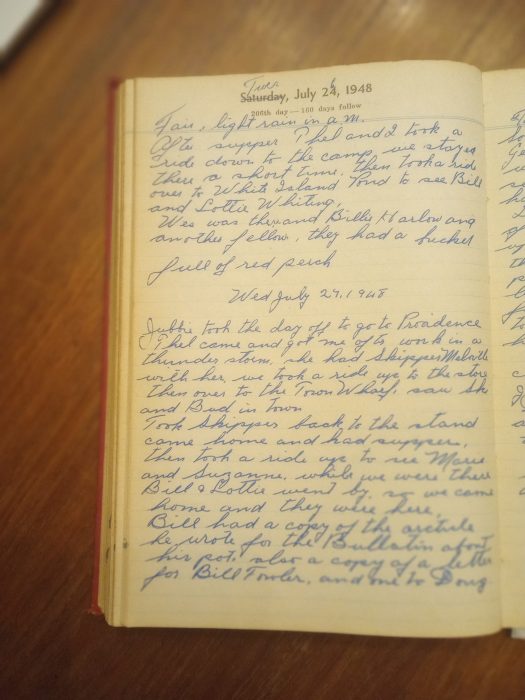 Tues
Saturday, July 26, 1948
206th day — 160 days follow
Fair, light rain in a.m.
After supper Thel and I took a
ride down to the camp, we stayed
there a short time, then took a ride
over to White Island Pond to see Bill
and Lottie Whiting.
Wes was there and Billie Harlow and
another fellow, they had a bucket
full of red perch
Wed July 27, 1948
took the day off to go to Providence
Thel came and got me after work in a
thunder storm. she had Skipper Melville
with her, we took a ride up to the store
then over to the Town Wharf, saw
and Bud in town
Took Skipper back to the stand
came home and had supper,
then took a ride up to see Marie
and Suzanne, while we were there
Bill & Lottie went by, so we came
home and they were here,
Bill had a copy of the arcticle
he wrote for the Bullatin about
his pot, also a copy of a letter
for Bill Fowler, and one to Doug